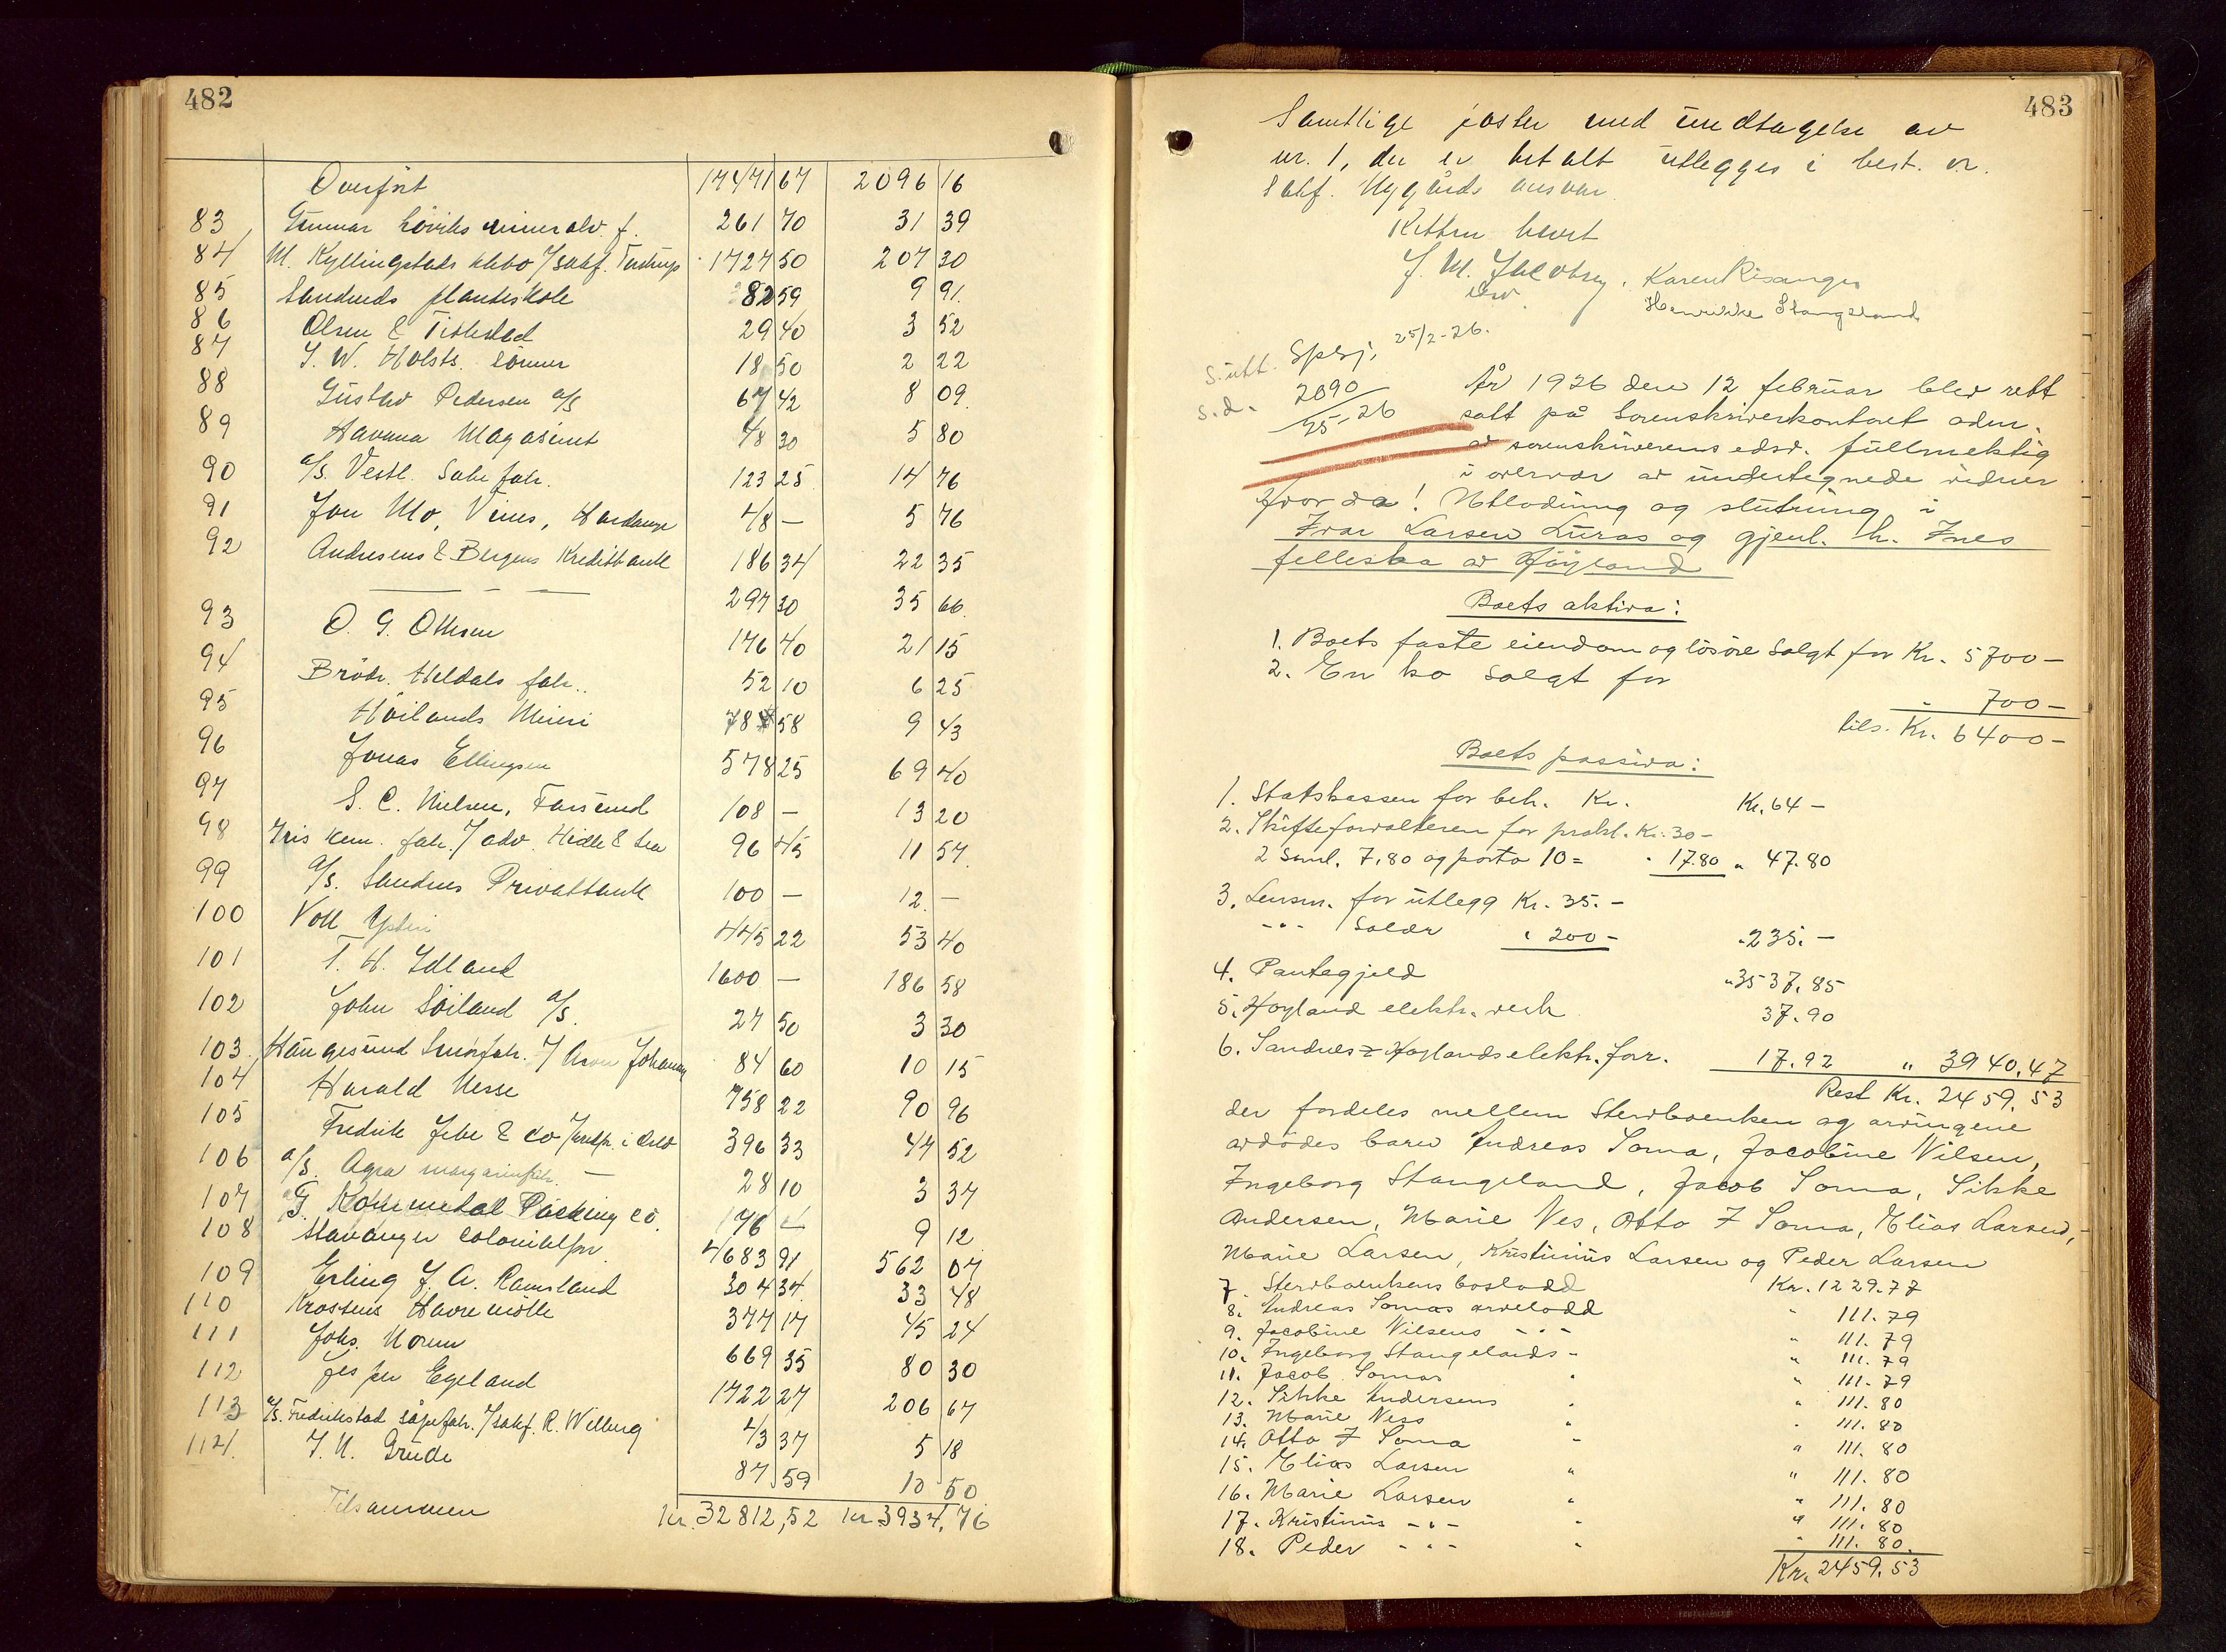 482
Overført 17471 67 2096 16
83 Gunnar Løviks mineralv. f. 261 70 31 39
84 M. Kyllingstads dbbo / sakf. 1727 50 207 30
85 Sandnes planteskole 82 59 9 91
86 Olsen & Tistedal 29 40 3 52
87 I. W. Holsts sønner 18 50 2 22
88 Gustav Pedersen a/s 67 42 8 09
89 Havana Magasinet 48 30 5 80
90 a/s. Vestl. Sabr. 123 25 14 76
91 Jon Mo, Vines, Hardanger 48 — 5 76
92 Andresens & Bergens Kreditbank 186 34 22 35
— — — 297 30 35 66
93 O. G. Ottesen 176 40 21 15
94 Brødr. Meldals fabr. 52 10 6 25
95 Høilands Meieri 78 58 9 43
96 Jonas Ellingsen 578 25 69 40
97 S. C. Nielsen, Farsund 108 — 13 20
98 Iris kem. fabr. / adv. 96 45 11 57
99 a/s. Sandnes Privatbank 100 — 12 —
100 Voll Ysteri 445 22 53 40
101 T. H. Idland 1600 — 186 58
102 John Søiland a/s. 27 50 3 30
103 Haugesund 84 60 10 15
104 Harald Nesse 758 22 90 96
105 Fredrik & Co 396 33 47 52
106 a/s. Agra margarinfabr. 28 10 3 37
107 Packing co. 176 — 9 12
108 Stavanger 4683 91 562 07
109 Erling J. A. Ramsland 304 34 33 48
110 Krossens Havremølle 377 17 45 24
111 Johs. Noren 669 35 80 30
112 Jesper Egeland 1722 27 206 67
113 a/s. Fredrikstad såpefabr. / sakf. R. Wilberg 43 37 5 18
114. I. N. Grude 87 59 10 50
Tilsammen kr. 32812,52 kr. 3934,76
483
Samtlige poster med undtagelse av
nr. 1, der er betalt utlegges i best. o.r.
Sakf. Nygårds ansvar.
Retten hevet
J. M. Jacobsen, Karen Risanger
Henrikke Stangeland
S. utt. Spesj. 25/2-26.
S. d. 2090
25-26
År 1926 den 12 februar blev rett
satt på Sorenskriverkontoret adm.
av sorenskriverens edsv. fullmektig
i overvær av undertegnede vidner
Hvorda! Utlodning og slutning i
Ivar Larsen Luras og gjenl. h. Ines
fellesbo av Høyland
Boets aktiva:
1. Boets faste eiendom og løsøre solgt for Kr. 5700 —
2. En ko solgt for - 700 —
tils. Kr. 6400 —
Boets passiva:
1. Statskassen for beh. Kr. Kr. 64 —
2. Skifteforvalteren for prokl. Kr. 30 —
2 saml. 7,80 og porto 10= " 17.80 " 47.80
3. Lensm. for utlegg Kr. 35. —
- " - Salær " 200 — " 235. —
4. Pantegjeld " 3537.85
5. Høyland elektr. verk 37.90
6. Sandnes & Høylands elektr. forr. 17.92 " 3940.47
Rest Kr. 2459.53
der fordeles mellem Stervboenken og arvingene
avdødes barn Andreas Soma, Jacobine Nilsen,
Ingeborg Stangeland, Jacob Soma, Sikke
Andersen, Marie Nes, Otto I Soma, Elias Larsen,
Marie Larsen, Kristinius Larsen og Peder Larsen
7. Stervboenkens boslodd Kr. 1229.77
8. Andreas Somas arvelodd " 111.79
9. Jacobine Nilsens - " - " 111.79
10. Ingeborg Stangelands - " 111.79
11. Jacob Somas " " 111.79
12. Sikke Andersens " " 111.80
13. Marie Ness " " 111.80
14. Otto I Soma - " 111.80
15. Elias Larsen " " 111.80
16. Marie Larsen " " 111.80
17. Kristinius - " - " " 111.80
18. Peder - " - " " 111.80.
Kr. 2459.53